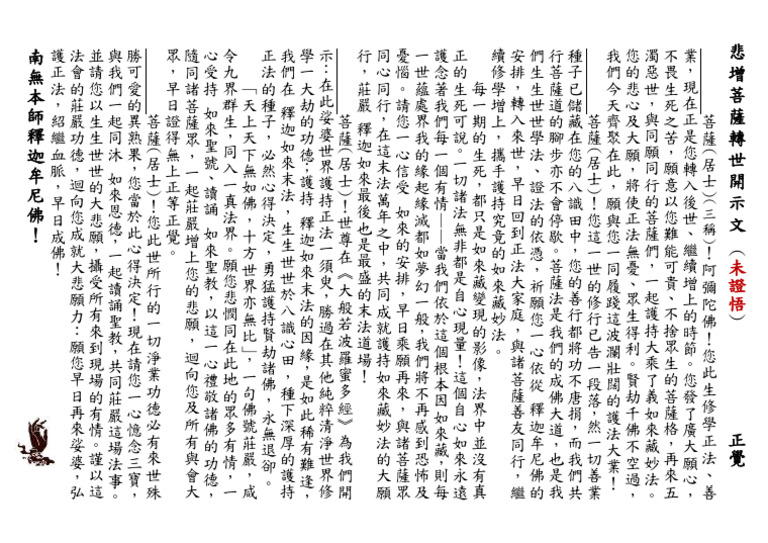 悲增菩薩轉世開示文（未證悟）　正覺
＿＿＿＿菩薩（居士）（三稱）！阿彌陀佛！您此生修學正法、善
業，現在正是您轉入後世、繼續增上的時節。您發了廣大願心，
不畏生死之苦，願意以您難能可貴、不捨眾生的菩薩格，再來五
濁惡世，與同願同行的菩薩們，一起護持大乘了義如來藏妙法。
您的悲心及大願，將使正法無憂、眾生得利。賢劫千佛不空過，
我們今天齊聚在此，願與您一同履踐這波瀾壯闊的護法大業！
＿＿＿＿菩薩（居士）！您這一世的修行已告一段落，然一切善業
種子已儲藏在您的八識田中，您的善行都將功不唐捐，而我們共
行菩薩道的腳步亦不會停歇。菩薩法是我們的成佛大道，也是我
們生生世世學法、證法的依憑，祈願您一心依從 釋迦牟尼佛的
安排，轉入來世，早日回到正法大家庭，與諸菩薩善友同行，繼
續修學增上，攜手護持究竟的如來藏妙法。
每一期的生死，都只是如來藏變現的影像，法界中並沒有真
正的生死可說。一切諸法無非都是自心現量！這個自心如來永遠
護念著我們每一個有情——當我們依於這個根本因如來藏，則每
一世蘊處界我的緣起緣滅都如夢幻一般，我們將不再感到恐怖及
憂惱。請您一心信受 如來的安排，早日乘願再來，與諸菩薩眾
同心同行，在這末法萬年之中，共同成就護持如來藏妙法的大願
行，莊嚴 釋迦如來最後也是最盛的末法道場！
＿＿＿＿菩薩（居士）！世尊在《大般若波羅蜜多經》為我們開
示：在此娑婆世界護持正法一須臾，勝過在其他純粹清淨世界修
學一大劫的功德；護持 釋迦如來末法的因緣，是如此稀有難逢，
我們在 釋迦如來末法，生生世世於八識心田，種下深厚的護持
正法的種子，必然心得決定，勇猛護持賢劫諸佛，永無退卻。
「天上天下無如佛，十方世界亦無比」，一句佛號莊嚴，咸
令九界群生，同入一真法界。願您悲憫同在此地的眾多有情，一
心受持 如來聖號、讀誦 如來聖教，以這一心禮敬諸佛的功德，
隨同諸菩薩眾，一起莊嚴增上您的悲願，迴向您及所有與會大
眾，早日證得無上正等正覺。
＿＿＿＿菩薩（居士）！您此世所行的一切淨業功德必有來世殊
勝可愛的異熟果，您當於此心得決定！現在請您一心憶念三寶，
與我們一起同沐 如來恩德，一起讀誦聖教，共同莊嚴這場法事。
並請您以生生世世的大悲願，攝受所有來到現場的有情。謹以這
法會的莊嚴功德，迴向您成就大悲願力：願您早日再來娑婆，弘
護正法，紹繼血脈，早日成佛！
南無本師釋迦牟尼佛！